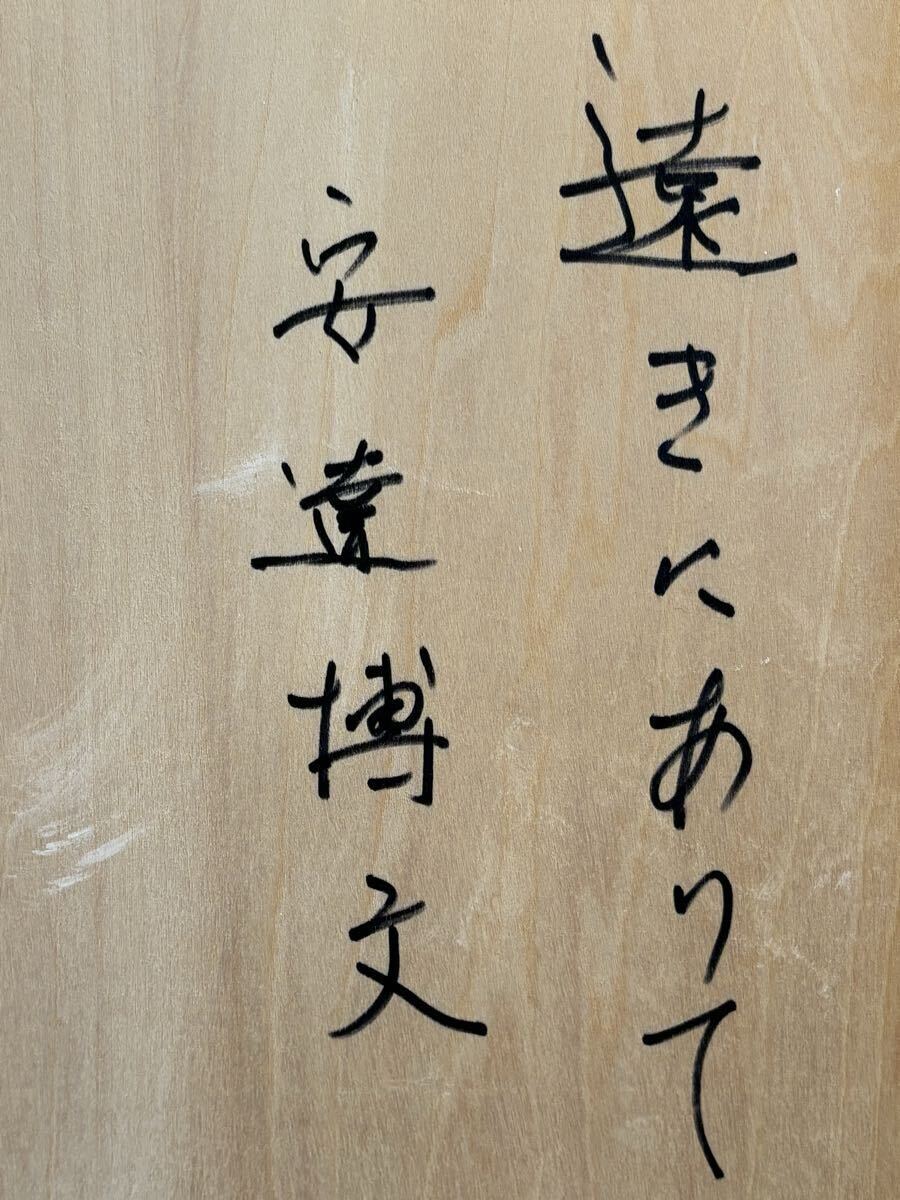 遠きにありて
安達博文